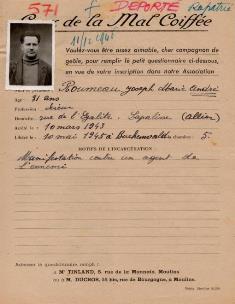 571 + DEPORTÉ Rapatrié
de la Mal Coiffée
11/2 1946
Voulez-vous être assez aimable, cher campagnon de
geôle, pour remplir le petit questionnaire ci-dessous,
en vue de votre inscription dans notre Association
Nom Roumeau Joseph Marie André
Age : 31 ans
Profession :
Domicile : rue de l'Égalité. Lapalisse (Allier)
Arrêté le : 10 mars 1943
Libéré le : 10 mai 1945 à Buchenwald 5.
MOTIFS DE L'INCARCÉRATION :
Manifestation contre un agent de
l'ennemi
Adresser le questionnaire rempli :
à Mr TINLAND, 8, rue de la Monnaie, Moulins
ou à M. DUCHON, 15 bis, rue de Bourgogne, à Moulins.